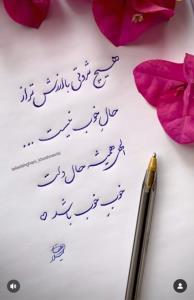 هیچ ثروتی با ارزش تر از
حال خوب نیست ...
الهی همیشه حال دلت
خوب خوب باشد